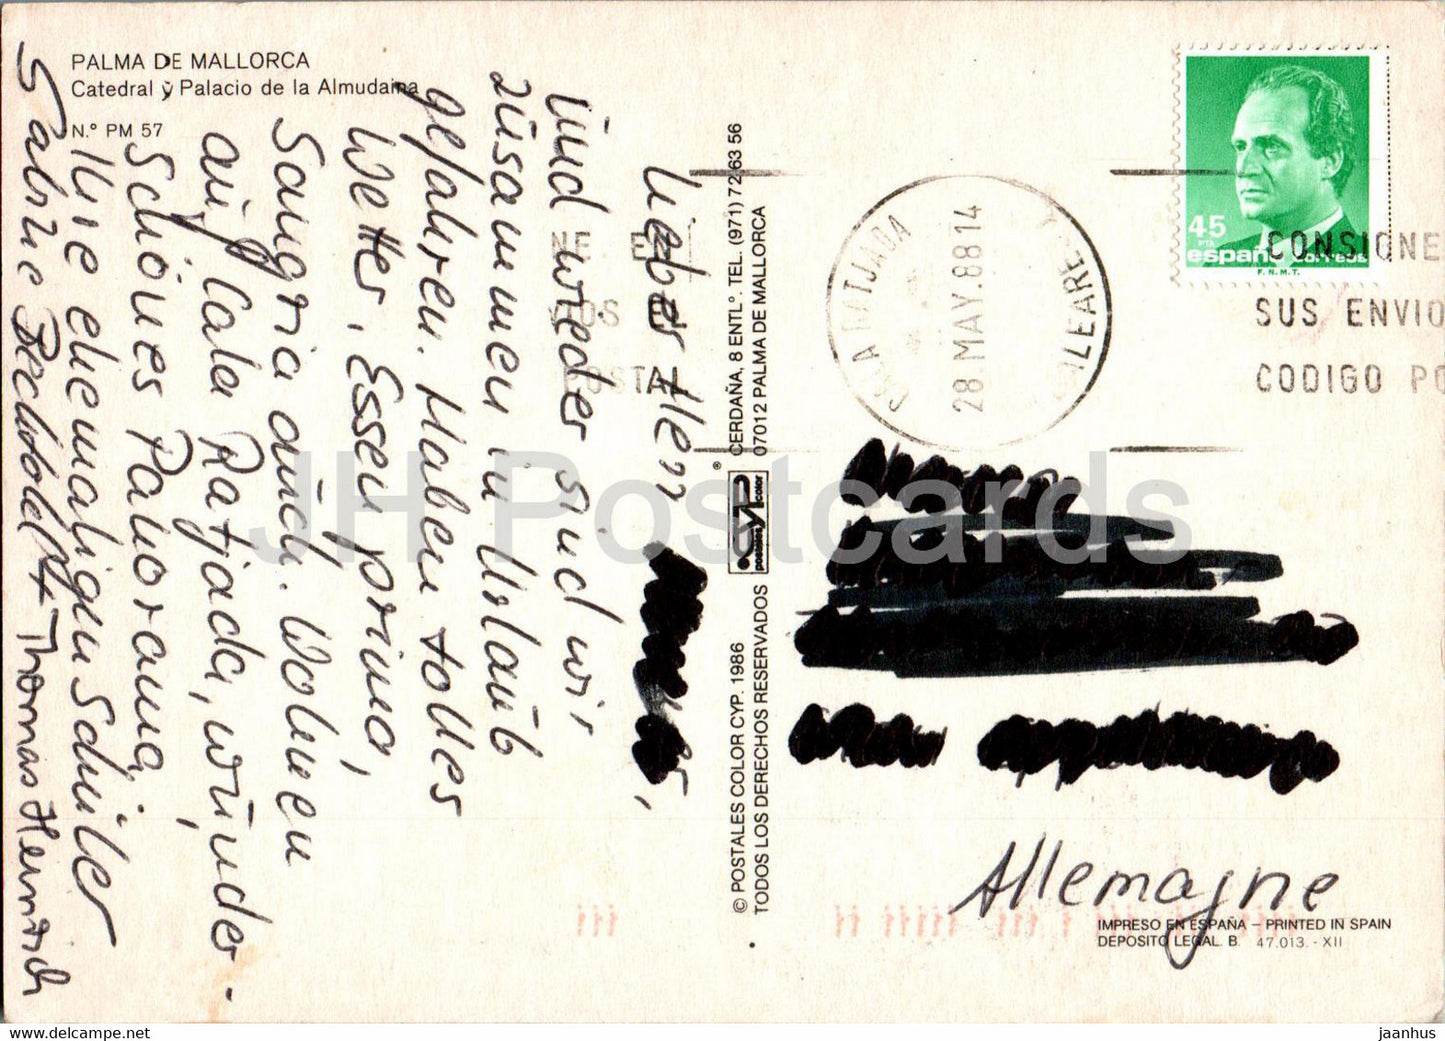 PALMA DE MALLORCA
Catedral y Palacio de la Almudaina
N.° PM 57
Lieber Herr
üund wieder sind wir
züsammen in Urlaüb
gefahren. Haben tolles
Wetter, Essen prima,
Sangria aüch. Wohnen
aüf Cala Ratjada, wünder-
schönes Panorama,
Ihre ehemaligen Schüler
Sabine + Thomas
© POSTALES COLOR CYP. 1986
TODOS LOS DERECHOS RESERVADOS
CYP
color
CERDAÑA, 8 ENTL°. TEL. (971) 72 63 56
07012 PALMA DE MALLORCA
CALA RATJADA
28 MAY. 88 14
BALEARES
45
PTA
españa correos
F.N.M.T.
CONSIGNE
SUS ENVIO
CODIGO PO
Allemagne
IMPRESO EN ESPAÑA - PRINTED IN SPAIN
DEPOSITO LEGAL. B. 47.013.-XII
JH Postcards
https://jhpostcards.com
jaanhus